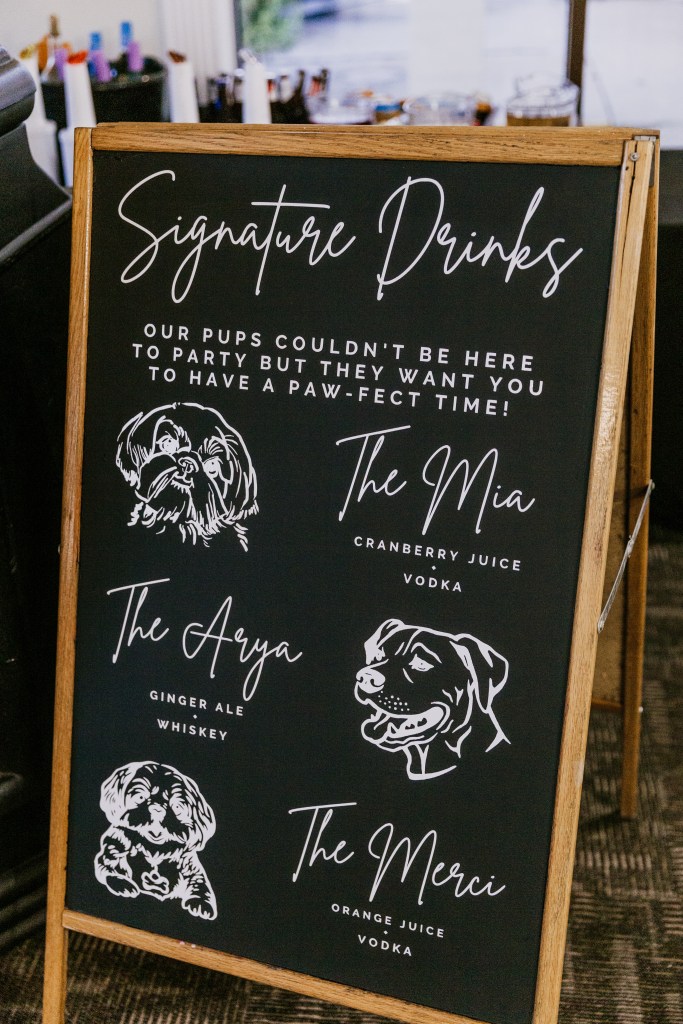 Signature Drinks
OUR PUPS COULDN'T BE HERE
TO PARTY BUT THEY WANT YOU
TO HAVE A PAW-FECT TIME!
The Mia
CRANBERRY JUICE
+
VODKA
The Arya
GINGER ALE
+
WHISKEY
The Merci
ORANGE JUICE
+
VODKA